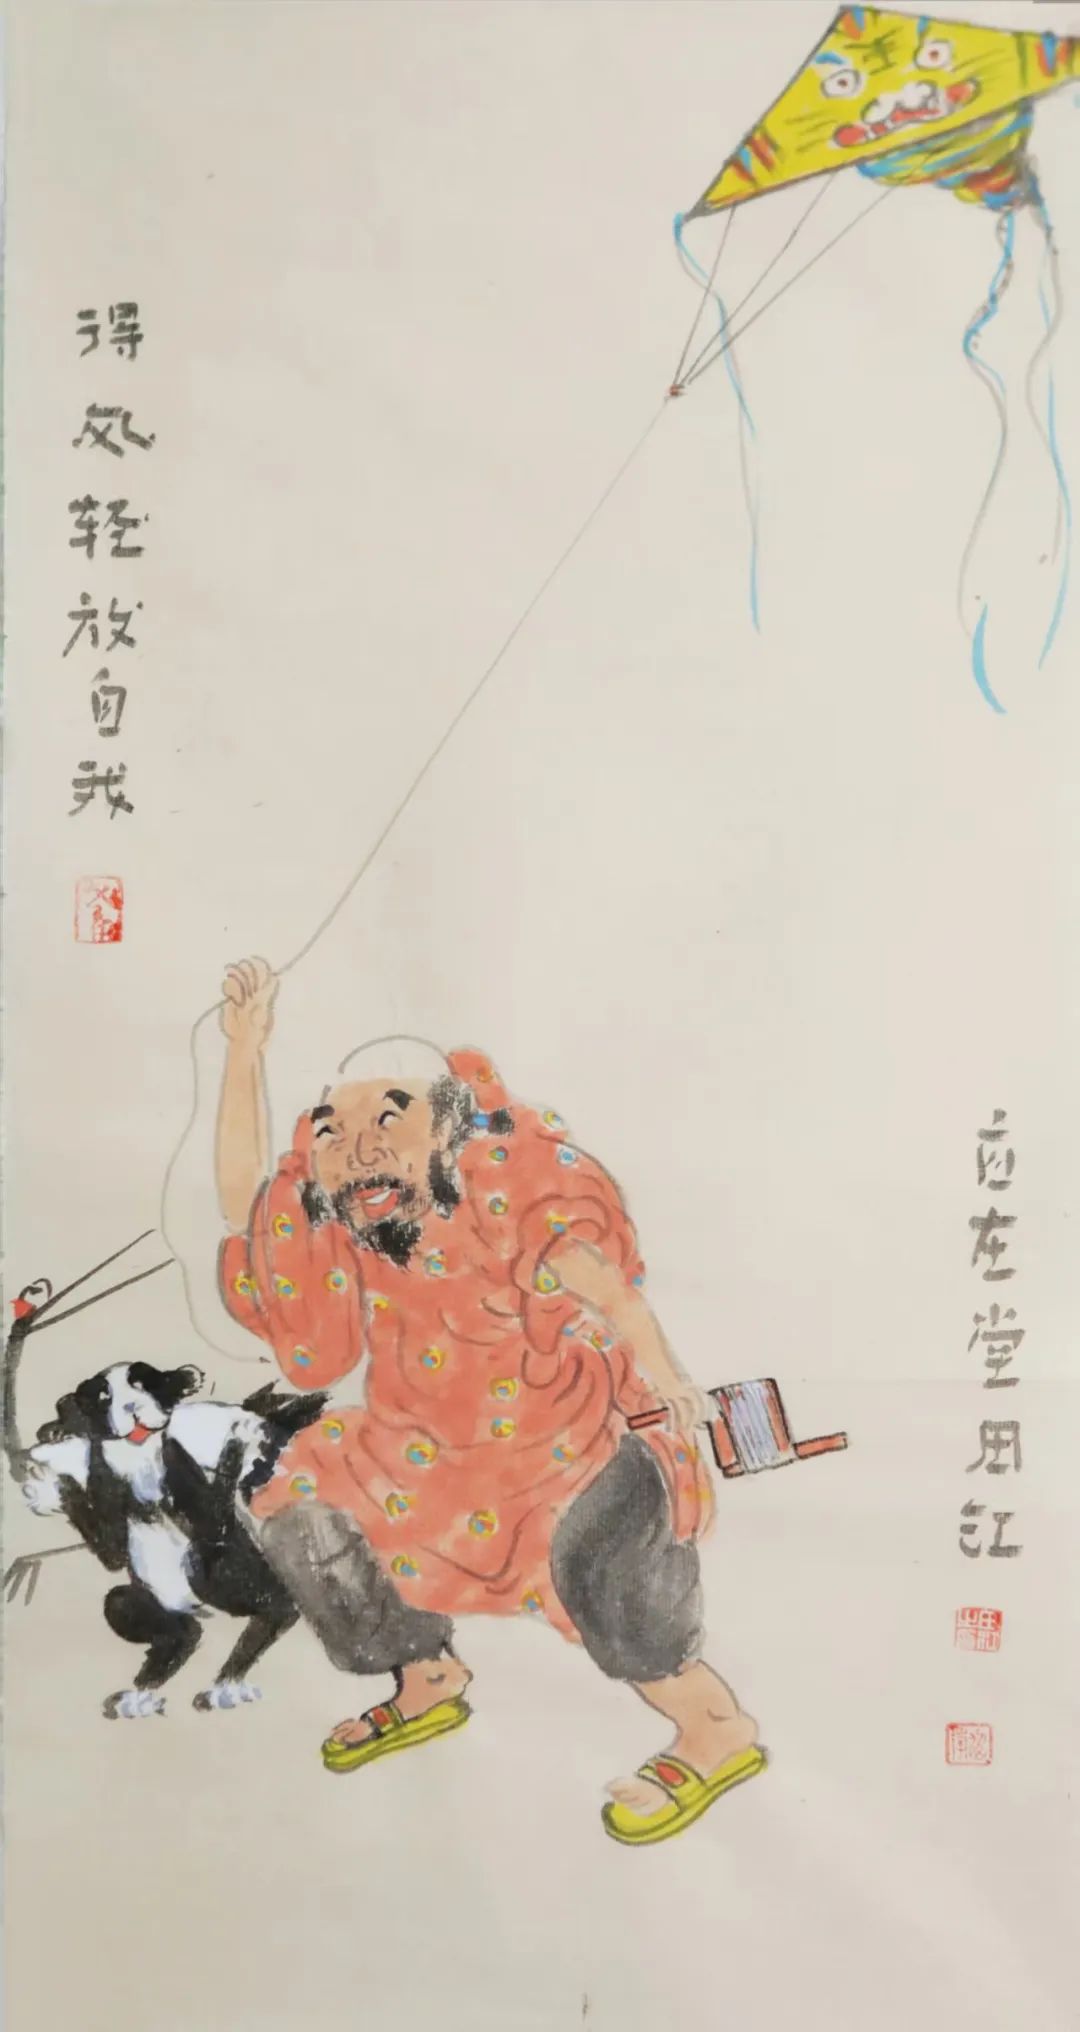 得风轻放自我
自在堂周江